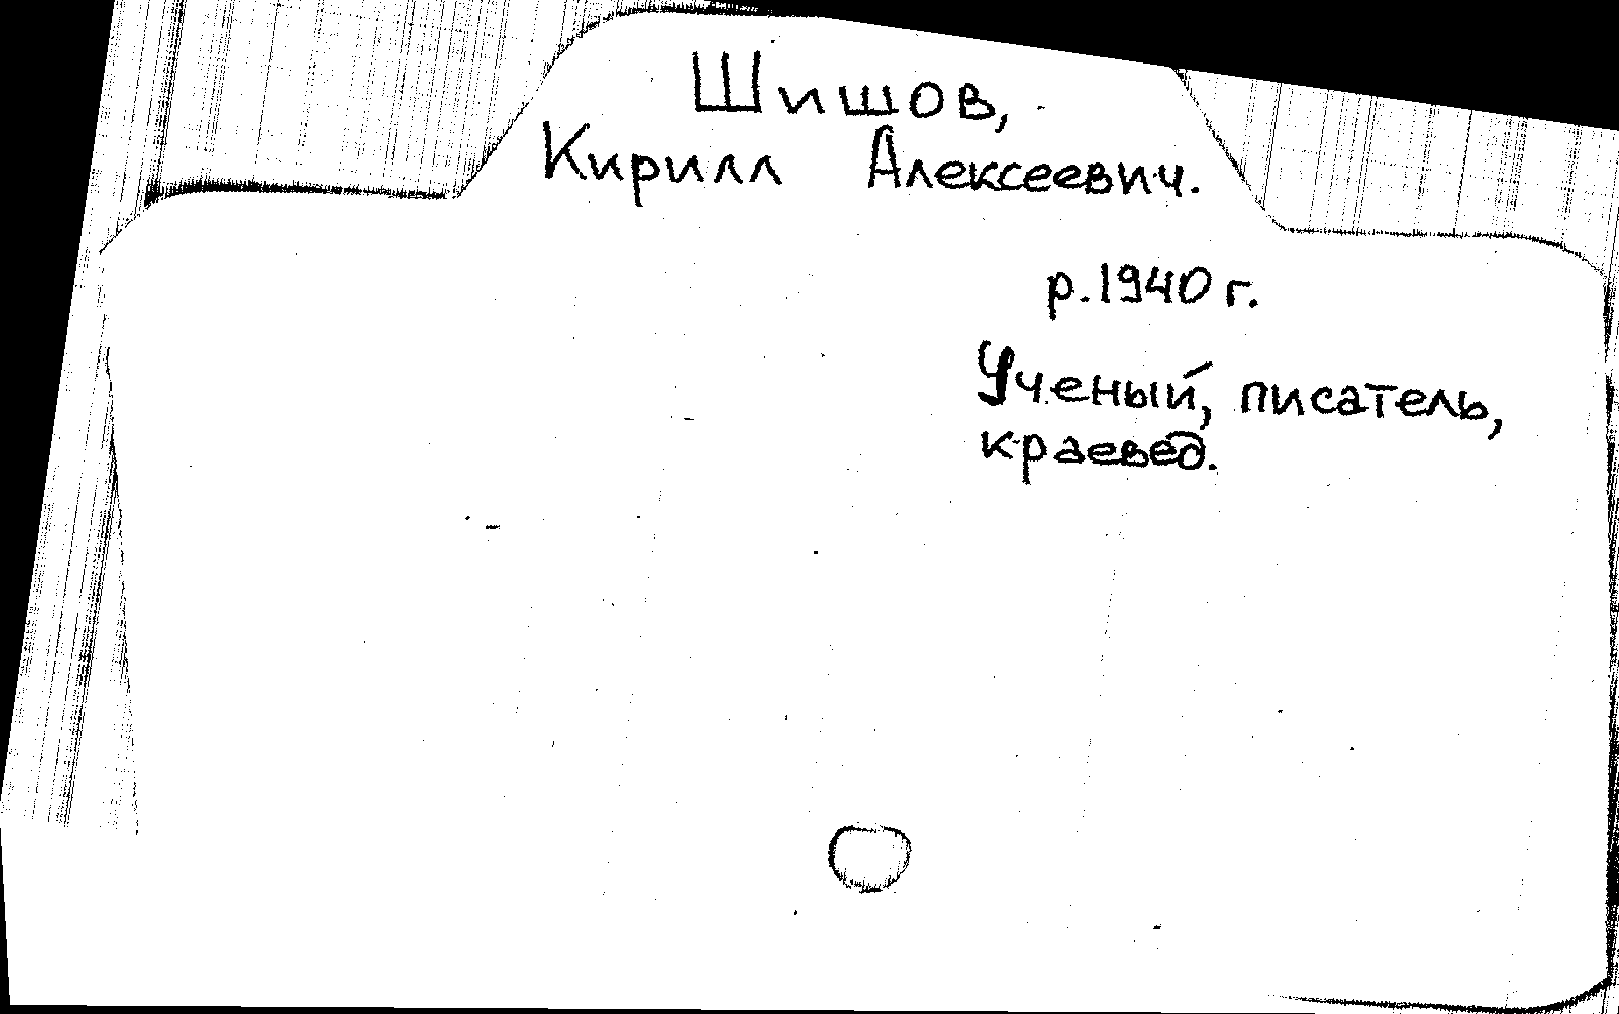 Шишов,
Кирилл Алексеевич.
р. 1940 г.
Ученый, писатель,
краевед.